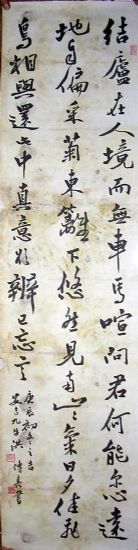 結廬在人境而無車馬喧問君何能尔心遠
地自偏采菊東籬下悠然見南山々氣日夕佳飛
鳥相與還此中真意欲辨已忘言
庚辰初冬之吉
洪傳書